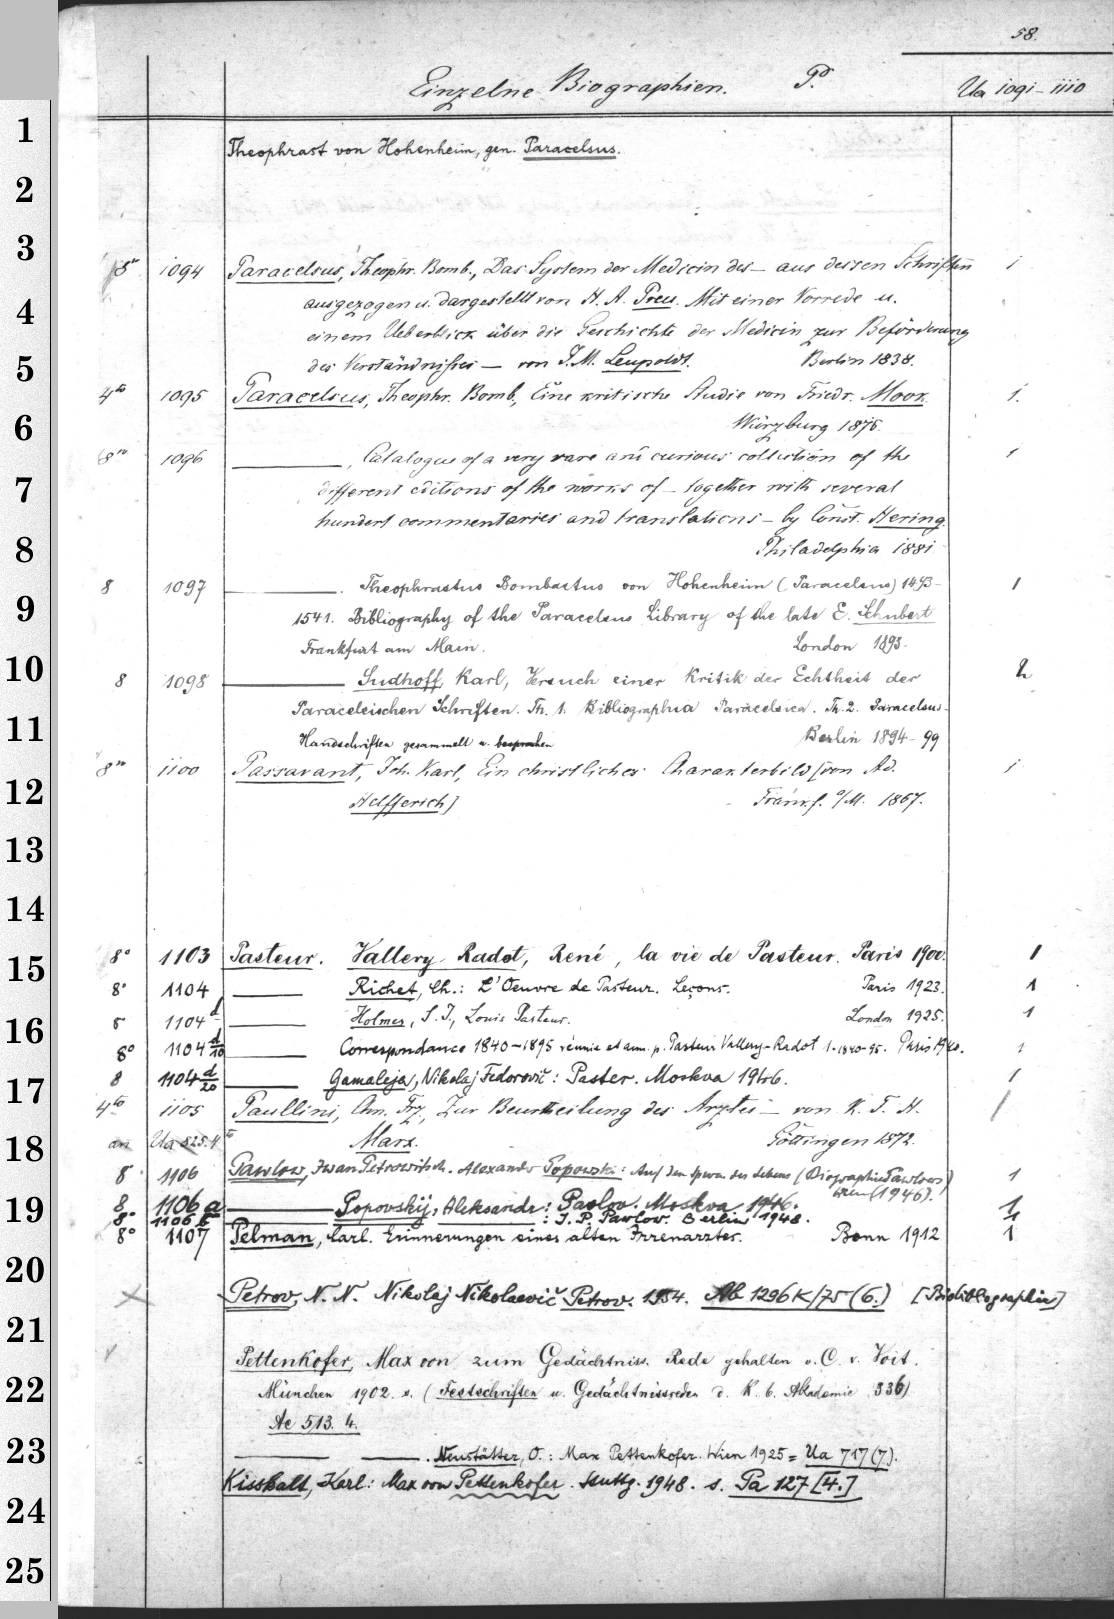 58.
Einzelne Biographien. P. Ua 1091-1110
1
Theophrast von Hohenheim, gen. Paracelsus.
2
3
8° 1094 Paracelsus, Theophr. Bomb., Das System der Medicin des — aus dessen Schriften 1
4
ausgezogen u. dargestellt von H. A. Preu. Mit einer Vorrede u.
einem Ueberblick über die Geschichte der Medicin zur Beförderung
5
des Verständnisses — von J. M. Leupoldt. Berlin 1838.
4to 1095 Paracelsus, Theophr. Bomb., Eine kritische Studie von Friedr. Mook. 1.
6
Würzburg 1876.
8vo 1096 ——, Catalogue of a very rare and curious collection of the 1
7
different editions of the works of — together with several
hundert commentaries and translations — by Const. Hering.
8
Philadelphia 1881
8 1097 ——. Theophrastus Bombastus von Hohenheim (Paracelsus) 1493- 1
9
1541. Bibliography of the Paracelsus Library of the late E. Schubert
Frankfurt am Main. London 1893.
10
8 1098 —— Sudhoff, Karl, Versuch einer Kritik der Echtheit der 2
11
Paracelsischen Schriften. Th. 1. Bibliographia Paracelsica. Th. 2. Paracelsus-
Handschriften gesammelt u. besprochen Berlin 1894-99
8vo 1100 Passavant, Joh. Karl, Ein christliches Charakterbild [von Ad. 1
12
Helfferich] Frankf. a/M. 1867.
13
14
15
8° 1103 Pasteur. Vallery Radot, René, la vie de Pasteur. Paris 1900. 1
8° 1104 —— Richet, Ch.: L'Oeuvre de Pasteur. Leçons. Paris 1923. 1
16
8 1104 d —— Holmes, S. J., Louis Pasteur. London 1925. 1
8° 1104 d/10 —— Correspondance 1840-1895 réunie et ann. p. Pasteur Vallery-Radot 1-1840-95. Paris 1940. 1
17
8 1104 d/20 —— Gamaleja, Nikolaj Fedorovič: Paster. Moskva 1946. 1
4to 1105 Paullini, Chn. Frz, Zur Beurtheilung des Arztes — von K. F. H. /
18
an Ua 525.4to Marx. Göttingen 1872.
8 1106 Pawlow, Iwan Petrowitsch. Alexander Popowski: Auf den Spuren des Lebens (Biographie Pawlows) 1
Wien (1946).
19
8 1106 a —— Popovskij, Aleksandr: Pavlov. Moskva 1946. 1
8. 1106 b —— : I. P. Pawlow. Berlin 1948. 1
8° 1107 Pelman, Carl. Erinnerungen eines alten Irrenarztes. Bonn 1912 1
20
Petrov, N. N. Nikolaj Nikolaevič Petrov. 1954. Ab 1296 K/75 (6.) [Biobibliographie]
21
Pettenkofer, Max von zum Gedächtniss. Rede gehalten v. C. v. Voit.
22
München 1902. s. (Festschriften u. Gedächtnissreden d. K. b. Akademie 336)
Ae 513. 4.
23
—— ——. Neustätter, O.: Max Pettenkofer. Wien 1925 = Ua 717 (7).
Kisskalt, Karl: Max von Pettenkofer. Stuttg. 1948. s. Pa 127 [4.]
24
25